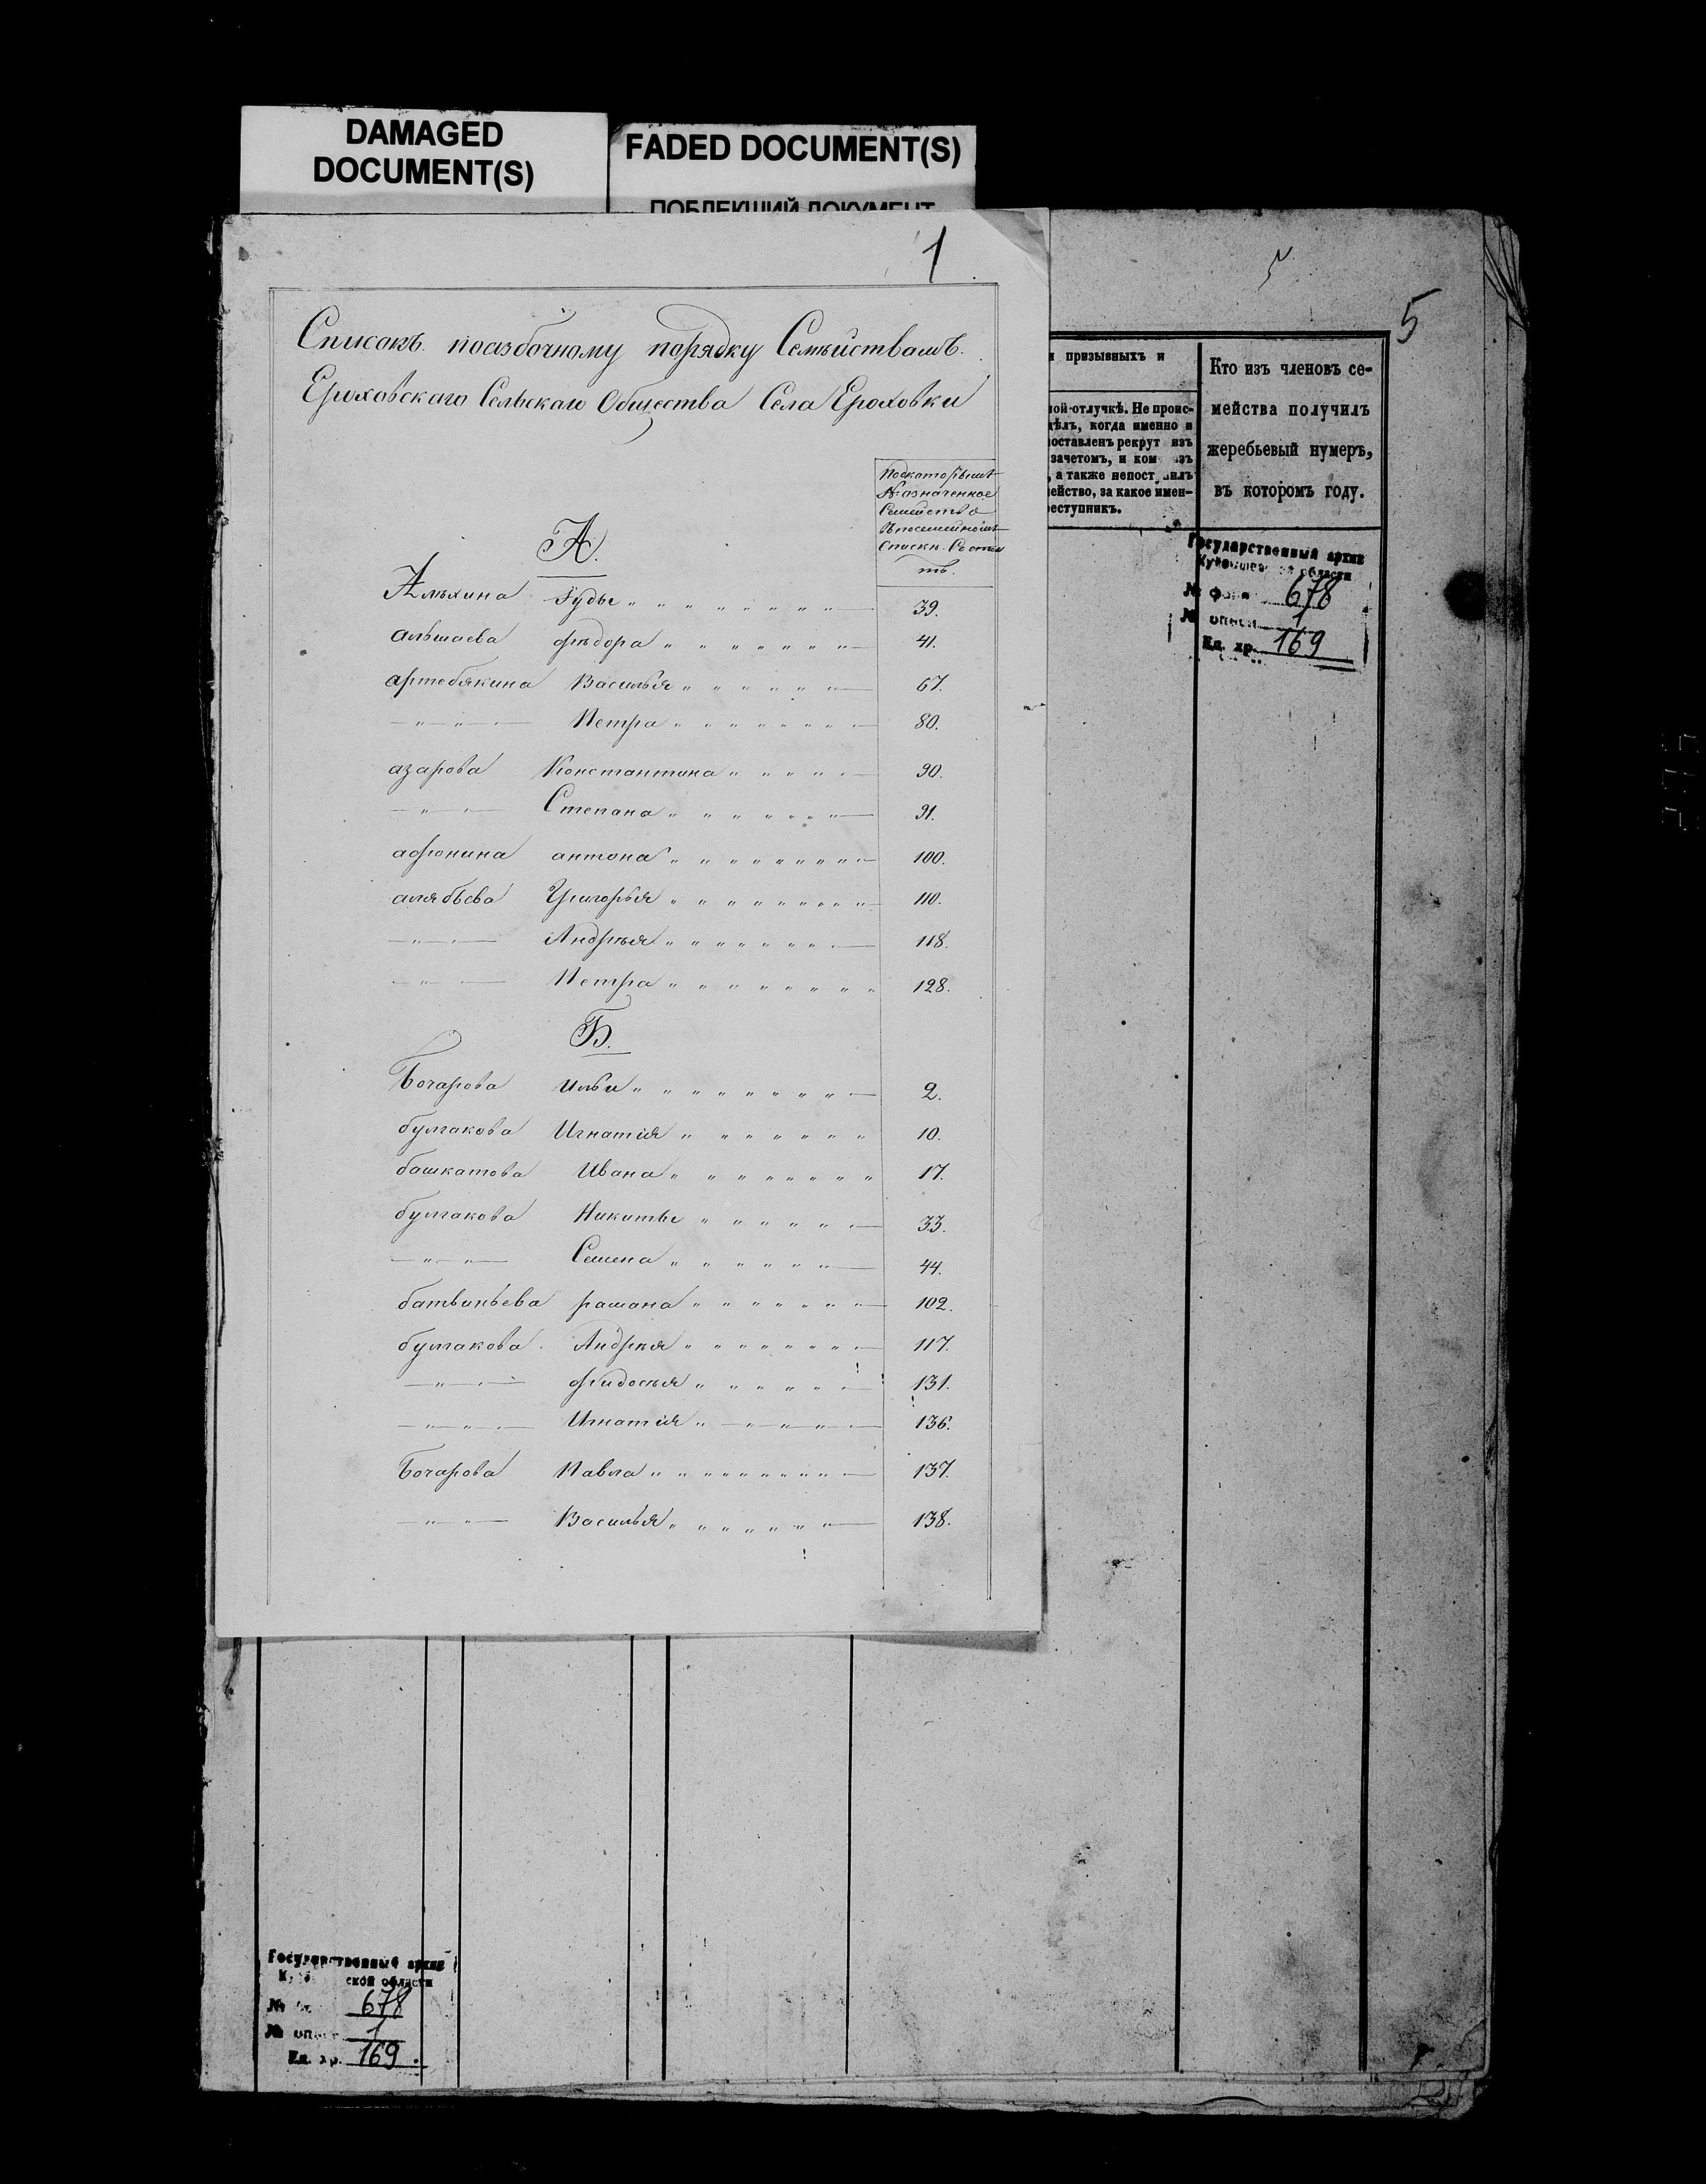 DAMAGED
DOCUMENT(S)
FADED DOCUMENT(S)
ПОБЛЕКШИЙ ДОКУМЕНТ
1
Списокъ поазбочному порядку Семѣйствамъ
Ероховскаго Сельскаго Общества Села Ероховки
Подкоторымъ
№ значенное
Семейство
Впосемейномъ
Списки Состои
тъ.
А.
Алѣхина 39.
альшаева фѣдора " " " " " " " 41.
артебякина Василья " " " " " " 67.
" " " Петра " " " " " " " 80.
азарова Константина " " " " " 90.
" " Степана " " " " " " " 91.
афонина антона " " " " " " " " 100.
алябьева Григорья " " " " " " " " 110.
" " Андрѣя " " " " " " " 118.
" " Петра " " " " " " " " 128.
Б.
Бочарова Ильи " " " " " " " " " 2.
булгакова Игнатія " " " " " " " 10.
башкатова Ивана " " " " " " " 17.
булгакова Никиты " " " " " " 33.
" " " Семена " " " " " " 44.
батвиньева рамана " " " " " " " 102.
булгакова Андрѣя " " " " " " " 117.
" " фидосѣя " " " " " " 131.
" " " Игнатія " " " " " " 136.
Бочарова Павла " " " " " " " " " 137.
" " Василья " " " " " " " 138.
5
5
призывныхъ и
ной отлучкѣ. Не проис-
дѣлъ, когда именно и
поставленъ рекрут изъ
зачетомъ, и ком изъ
, а также непост илъ
ейство, за какое имен-
реступникъ.
Кто изъ членовъ се-
мейства получилъ
жеребьевый нумеръ,
въ которомъ году.
Государственный архив
Куйбышевской области
№ фонда 678
№ описи 1
Ед. хр. 169
Государственный архив
ской области
№ 678
№ опис 1
Ед. хр. 169